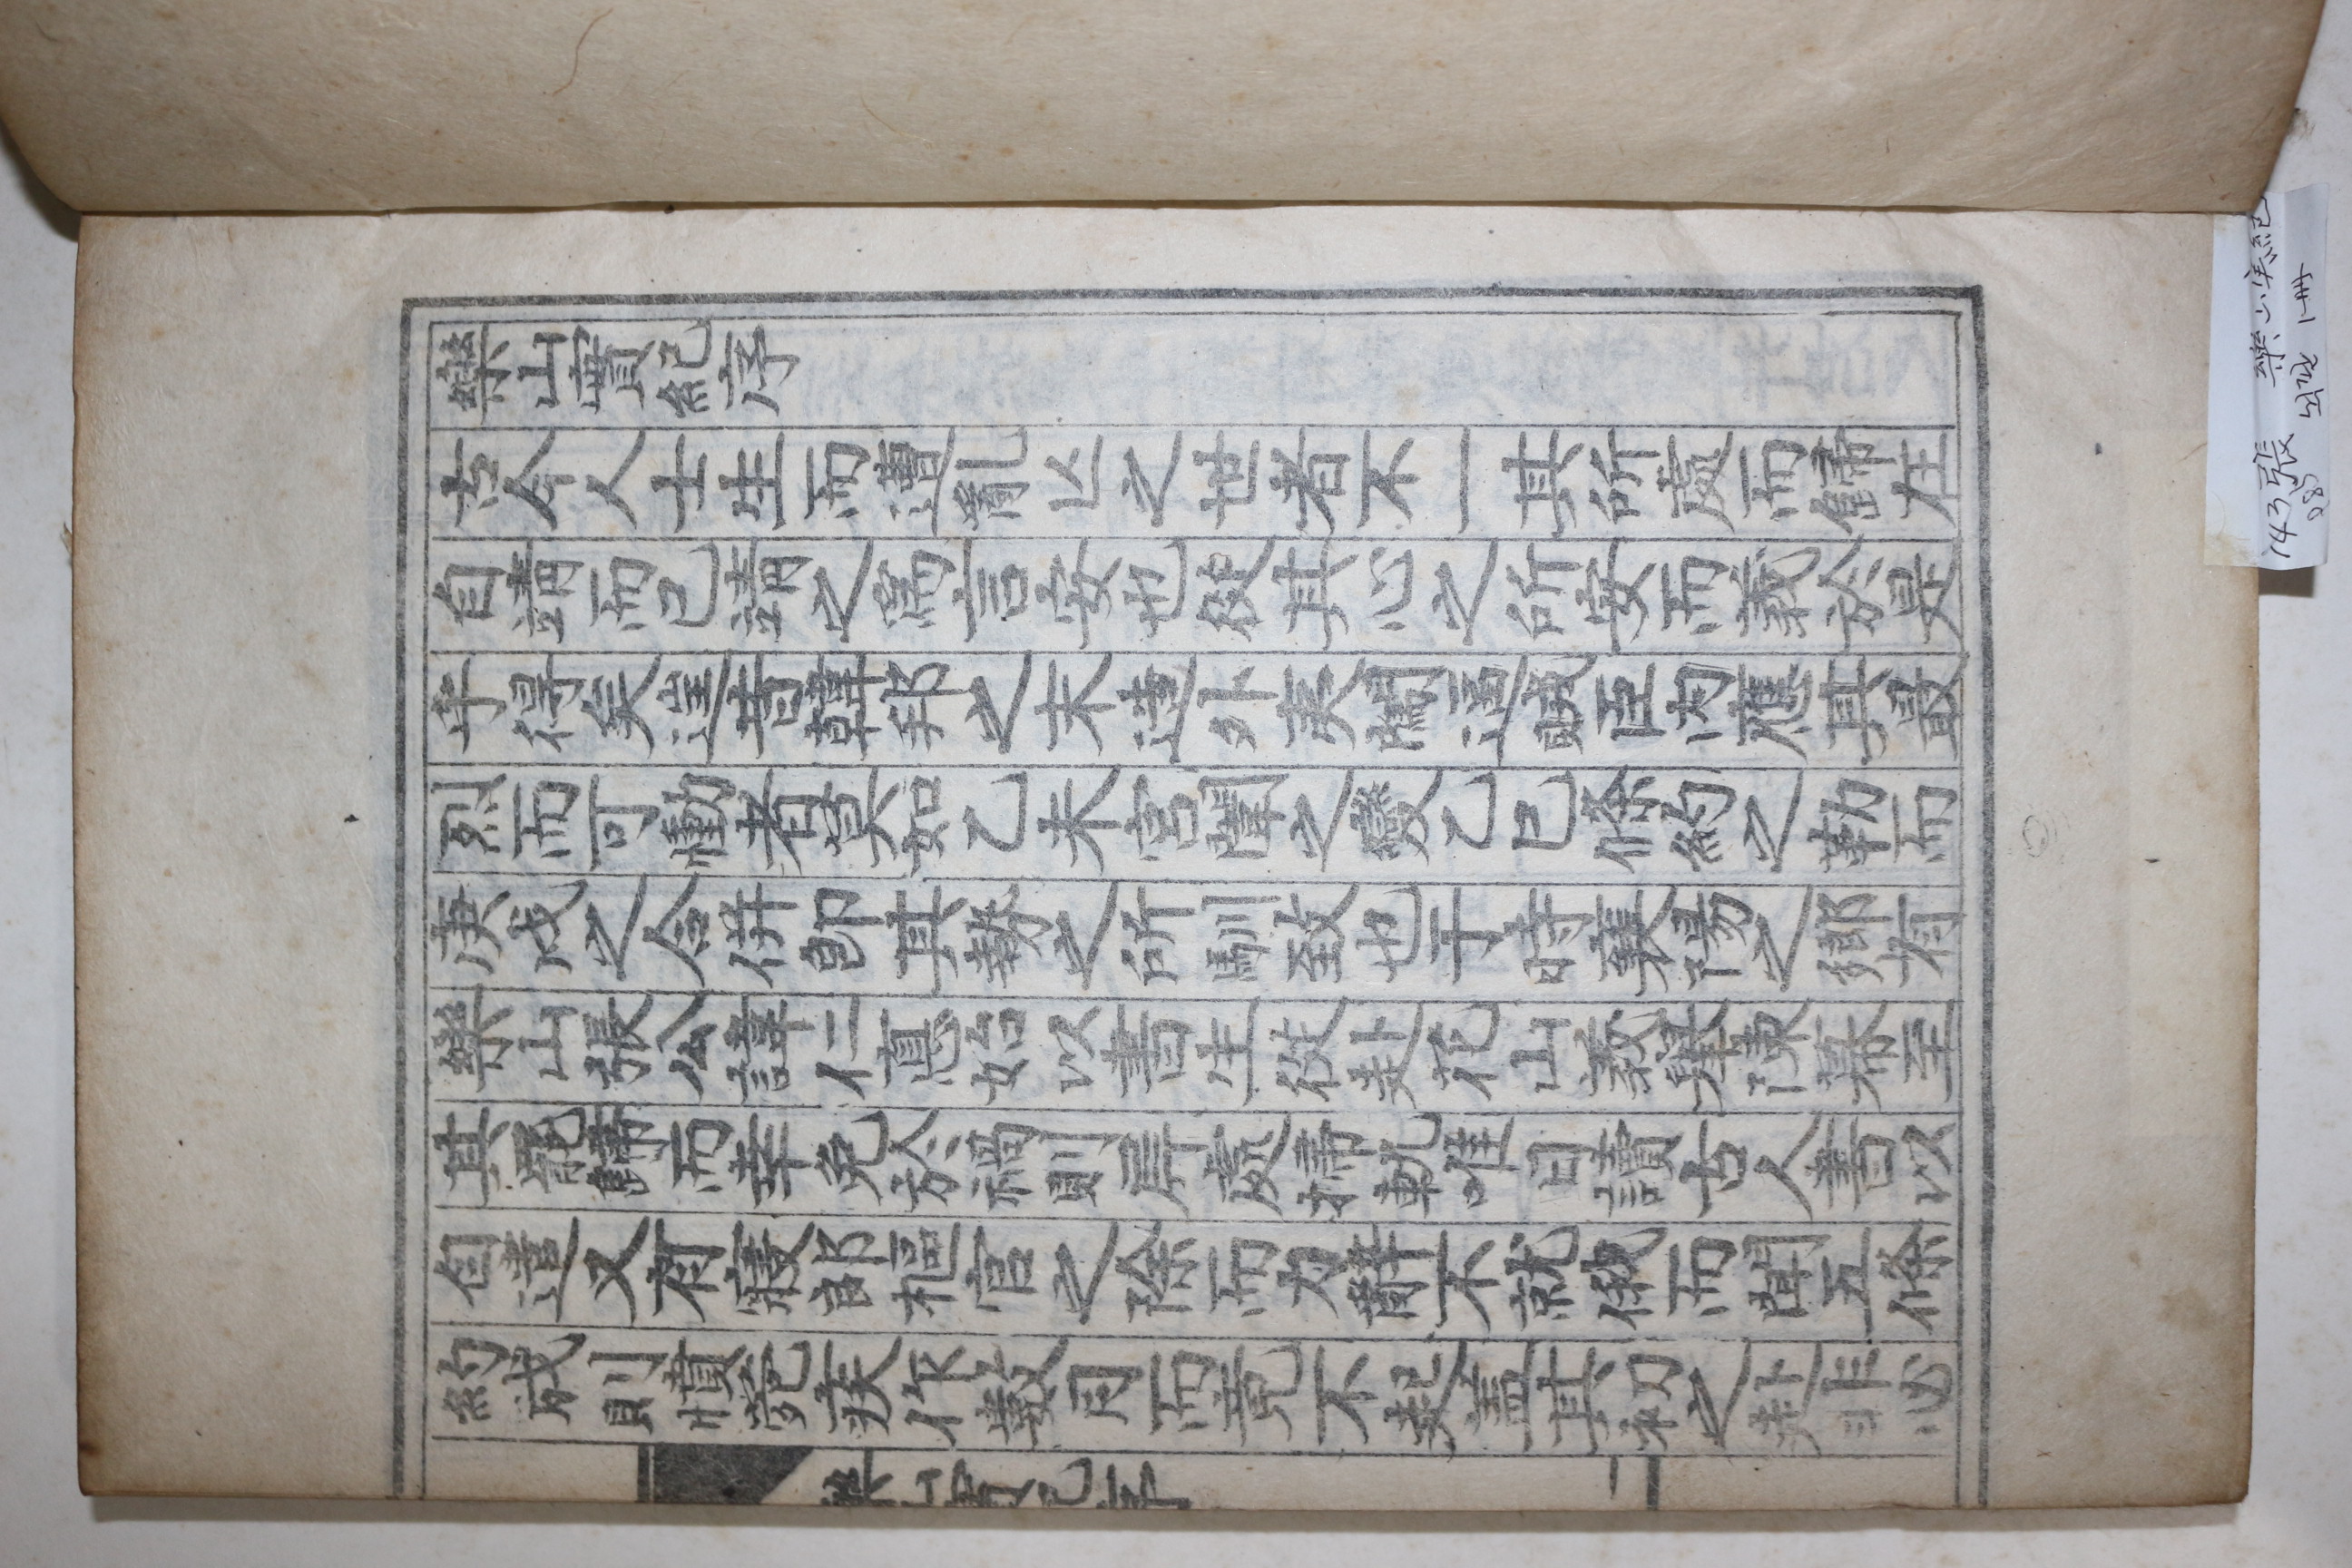 樂山實紀序
古今人士生而遭亂亾之世者不一其所處而歸在
自靖而已靖之爲言安也從其心之所安而義於是
乎得矣逞昔韓邦之末造外夷闖逼賊臣內應其最
烈而可慟者莫如乙未宮闈之變乙巳條約之勒而
庚戌之合併卽其勢之所馴致也于時襄陽之鄕有
樂山張公諱仁悳始以書生從赴花山義擧陳幕至
其罷歸而幸免於禍則屛處掃軌唯日讀古人書以
自遣又有寢郎樞官之除而力辭不就俄而聞五條
約成則憤菀疾作數月而竟不起蓋其初之赴非必
樂山實紀序
一
143張 樂山実紀
085 1冊